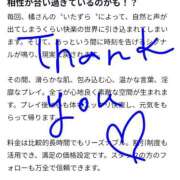 相性が合い過ぎているのかも！？
毎回、橘さんの“いたずら“によって、自然と声が
出てしまうくらい快楽の世界に引き込まれてしまい
ます。そして、あっという間に時間を告げる
が鳴り、現実に戻されます。
その間、滑らかな肌、包み込む心、温かな言葉、淫
靡なプレイ。全てが心地良く素敵な空間が生まれま
す。プレイ後
らって帰ります。
料金は比較的長時間でもリーズナブル。割引制度も
活用でき、満足の価格設定です。スタッフの方のフ
ォローも万全で信頼できます。
Thank
you